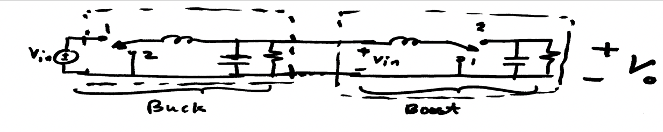 1 2
Vin 2 + Vin - 1 + Vo -
Buck Boost